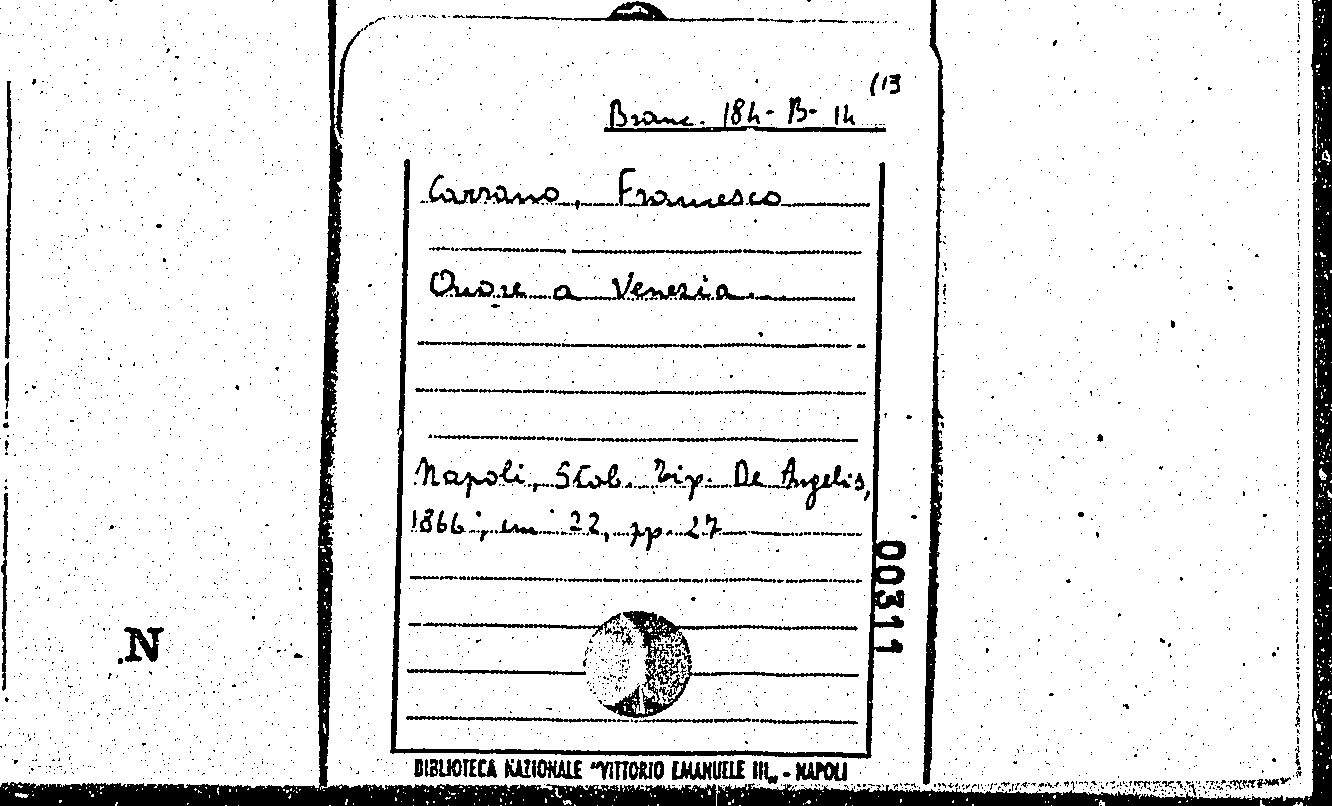 (13
Branc. 184-B-14
Carrano, Francesco
Onore a Venezia.
Napoli, Stab. Tip. De Angelis,
1866; cm 22, pp. 27
00311
N
BIBLIOTECA NAZIONALE "VITTORIO EMANUELE III„ - NAPOLI